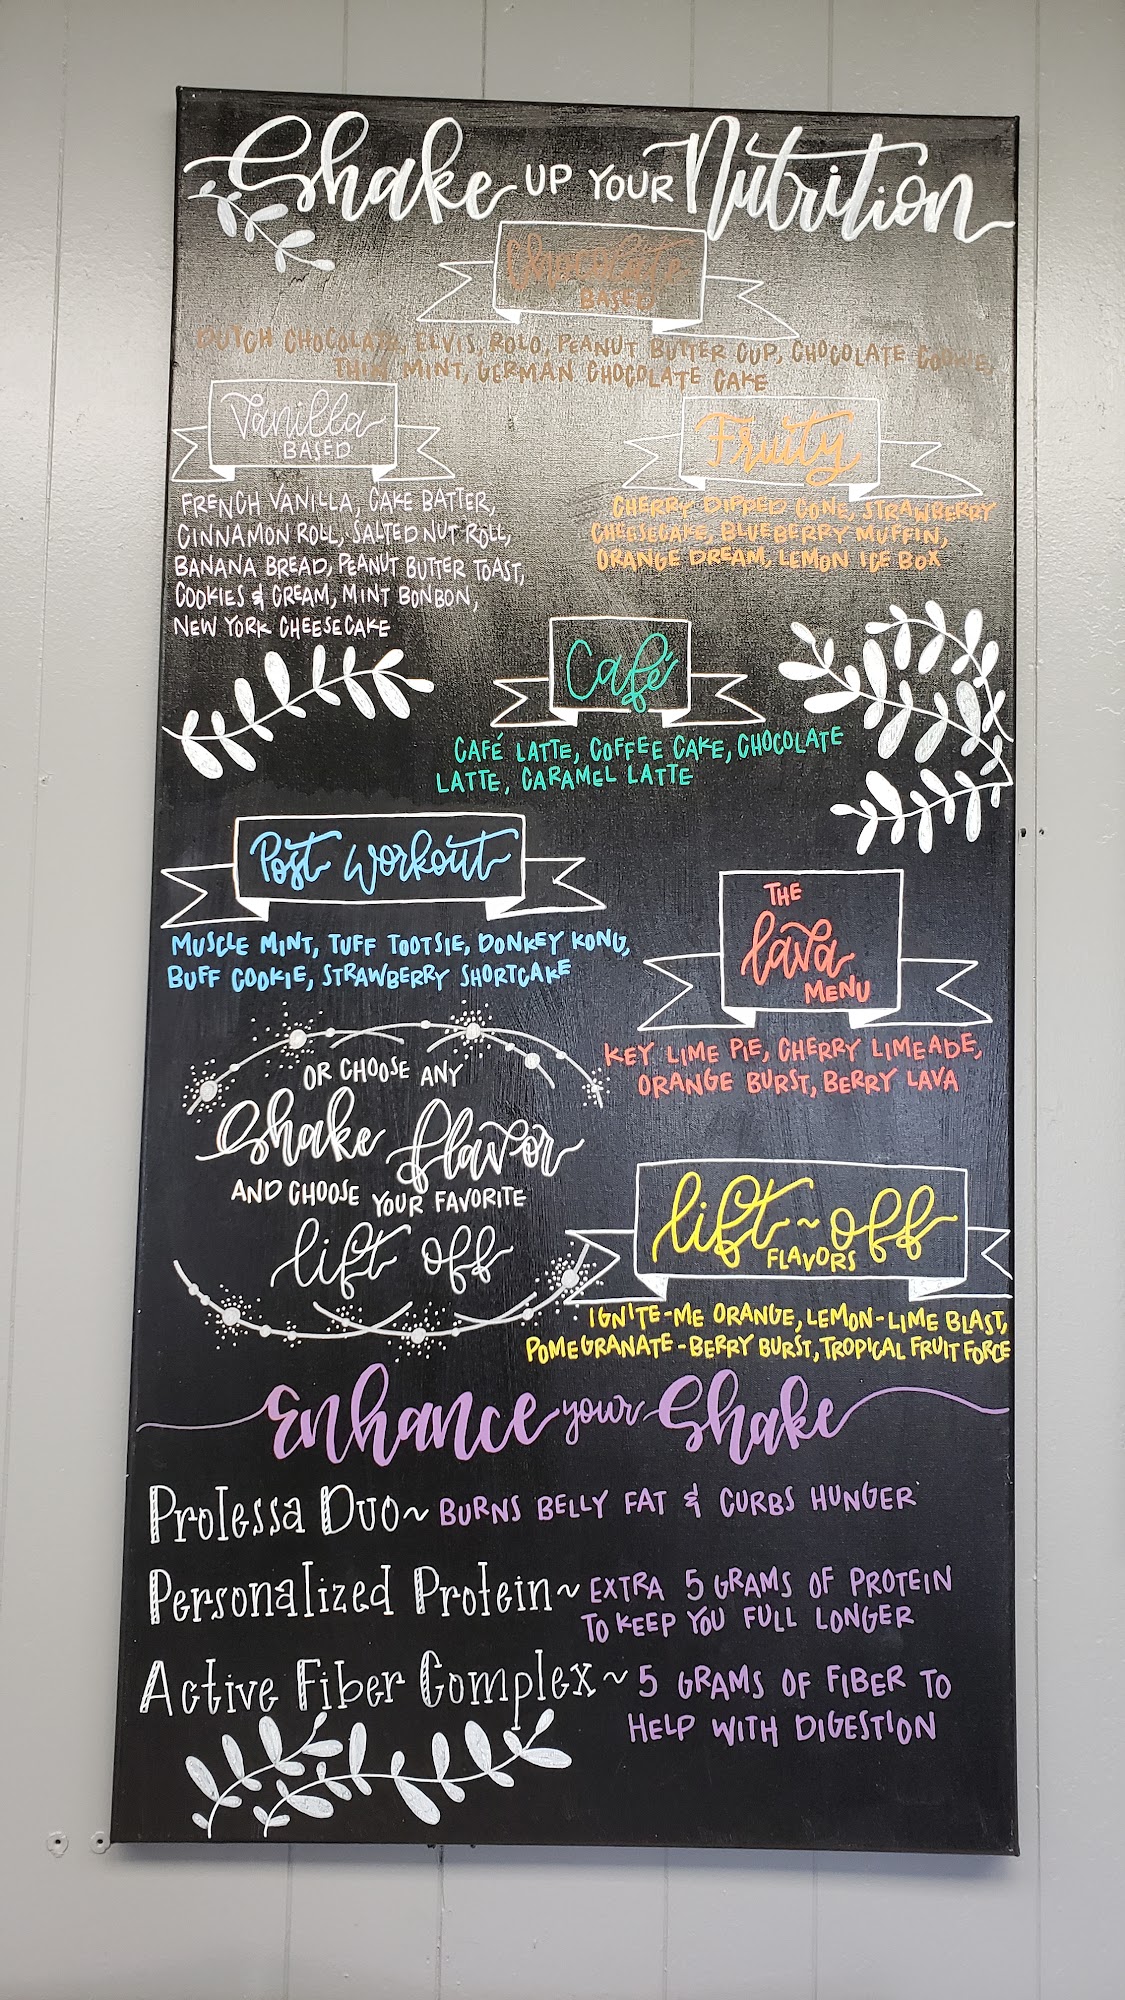 Shake UP YOUR Nutrition
Chocolate
BASED
DUTCH CHOCOLATE, ELVIS, ROLO, PEANUT BUTTER CUP, CHOCOLATE COOKIE,
THIN MINT, GERMAN CHOCOLATE CAKE
Vanilla
BASED
FRENCH VANILLA, CAKE BATTER,
CINNAMON ROLL, SALTED NUT ROLL,
BANANA BREAD, PEANUT BUTTER TOAST,
COOKIES & CREAM, MINT BONBON,
NEW YORK CHEESECAKE
Fruity
CHERRY DIPPED CONE, STRAWBERRY
CHEESECAKE, BLUEBERRY MUFFIN,
ORANGE DREAM, LEMON ICE BOX
Café
CAFÉ LATTE, COFFEE CAKE, CHOCOLATE
LATTE, CARAMEL LATTE
Post Workout
MUSCLE MINT, TUFF TOOTSIE, DONKEY KONG,
BUFF COOKIE, STRAWBERRY SHORTCAKE
THE
lava
MENU
KEY LIME PIE, CHERRY LIMEADE,
ORANGE BURST, BERRY LAVA
OR CHOOSE ANY
Shake flavor
AND CHOOSE YOUR FAVORITE
lift off
lift~off
FLAVORS
IGNITE-ME ORANGE, LEMON-LIME BLAST,
POMEGRANATE-BERRY BURST, TROPICAL FRUIT FORCE
Enhance your Shake
Prolessa Duo~ BURNS BELLY FAT & CURBS HUNGER
Personalized Protein~ EXTRA 5 GRAMS OF PROTEIN
TO KEEP YOU FULL LONGER
Active Fiber Complex~ 5 GRAMS OF FIBER TO
HELP WITH DIGESTION